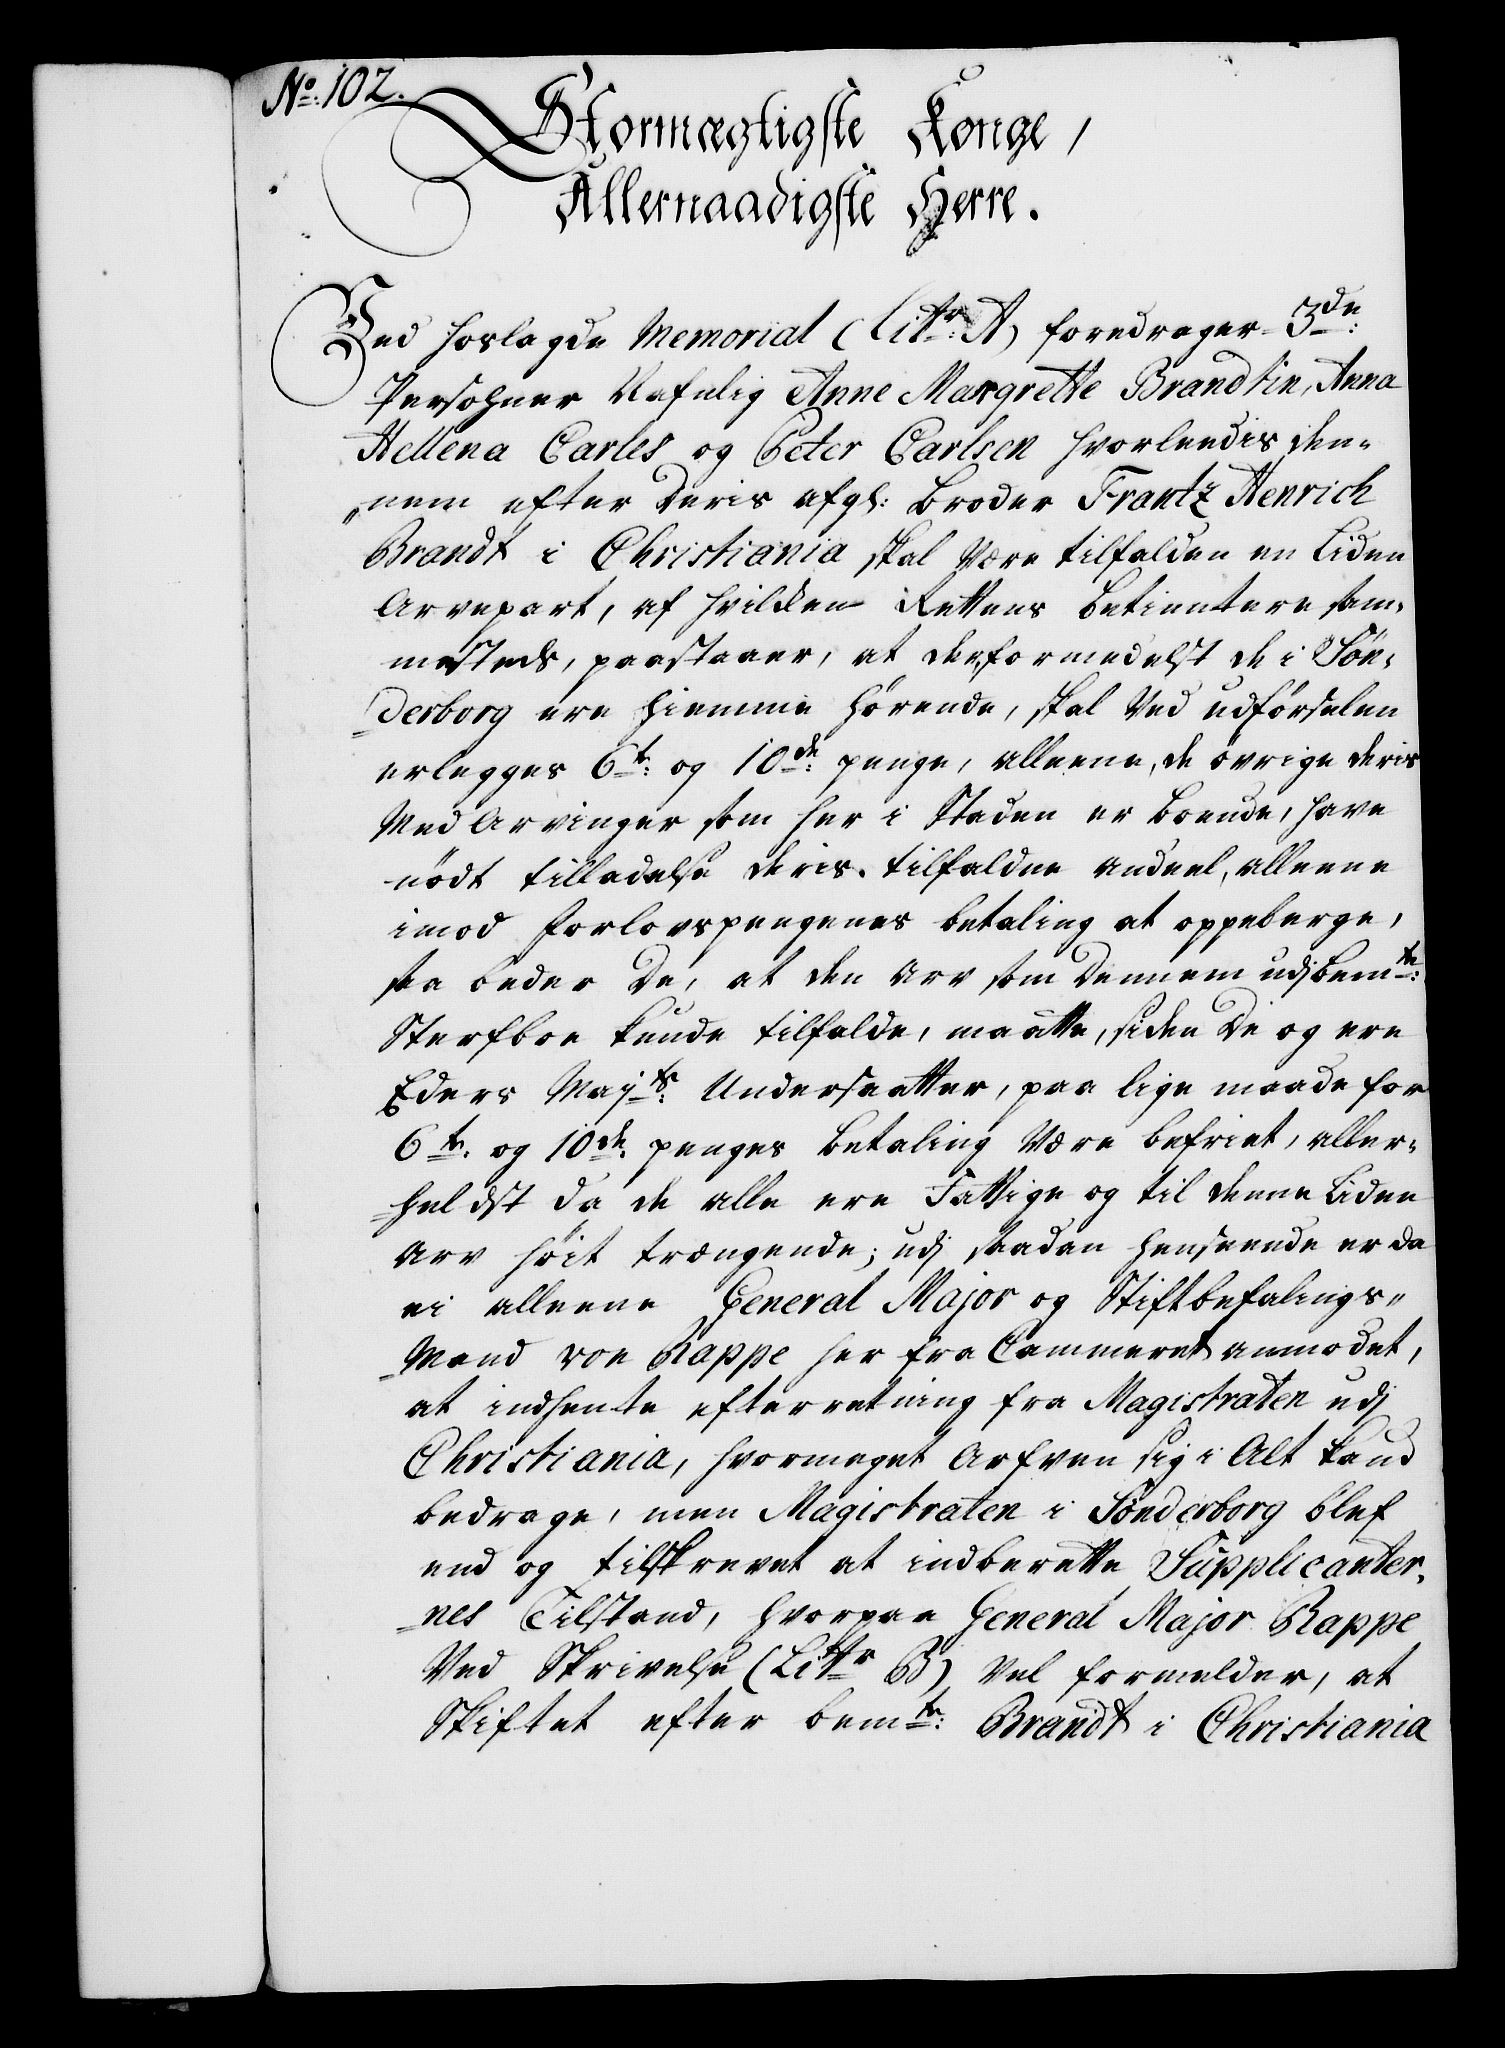 No: 102.
Stormægtigste Konge,
Allernaadigste Herre.
Ved hoslagde Memorial (Littr: A) foredrager 3de:
Persohner Nafnlig Anne Margrette Brandtin, Anna
Hellena Carles og Peter Carlsen hvorleedis den-
nem efter deris afgl: Broder Frantz Henrich
Brandt i Christiania skal være tilfalden en liden
Arvepart, af hvilcken Rettens betientere sam-
mesteds, paastaaer, at derformedelst de i Sön-
derborg ere hiemme hörende, skal ved udförselen
erlegges 6te: og 10de: penge, alleene, de övrige deris
Med Arvinger som her i Staden er boende, have
nödt tilladelse deris tilfaldne andeel, alleene
imod forlovspengenes betaling at oppeberge,
saa beder de, at den Arv som dennem udj bemte:
Sterfboe kunde tilfalde, maatte, siden de og ere
Eders Mayts: Undersaatter, paa lige maade for
6te. og 10de. penges betaling være befriet, aller-
heldst da de alle ere Fattige og til denne liden
Arv höit trængende; udj saadan henseende er da
ei alleene General Major og Stiftbefalings-
Mand von Rappe her fra Cammeret anmodet,
at indhente efterretning fra Magistraten udj
Christiania, hvormeget Arfven sig i Alt kand
bedrage, men Magistraten i Sönderborg blef
end og tilskrevet at indberette Supplicanter-
nes Tilstand, hvorpaa General Major Rappe
Ved Skrivelse (Littr B) vel formelder, at
Skiftet efter bemte: Brandt i Christiania